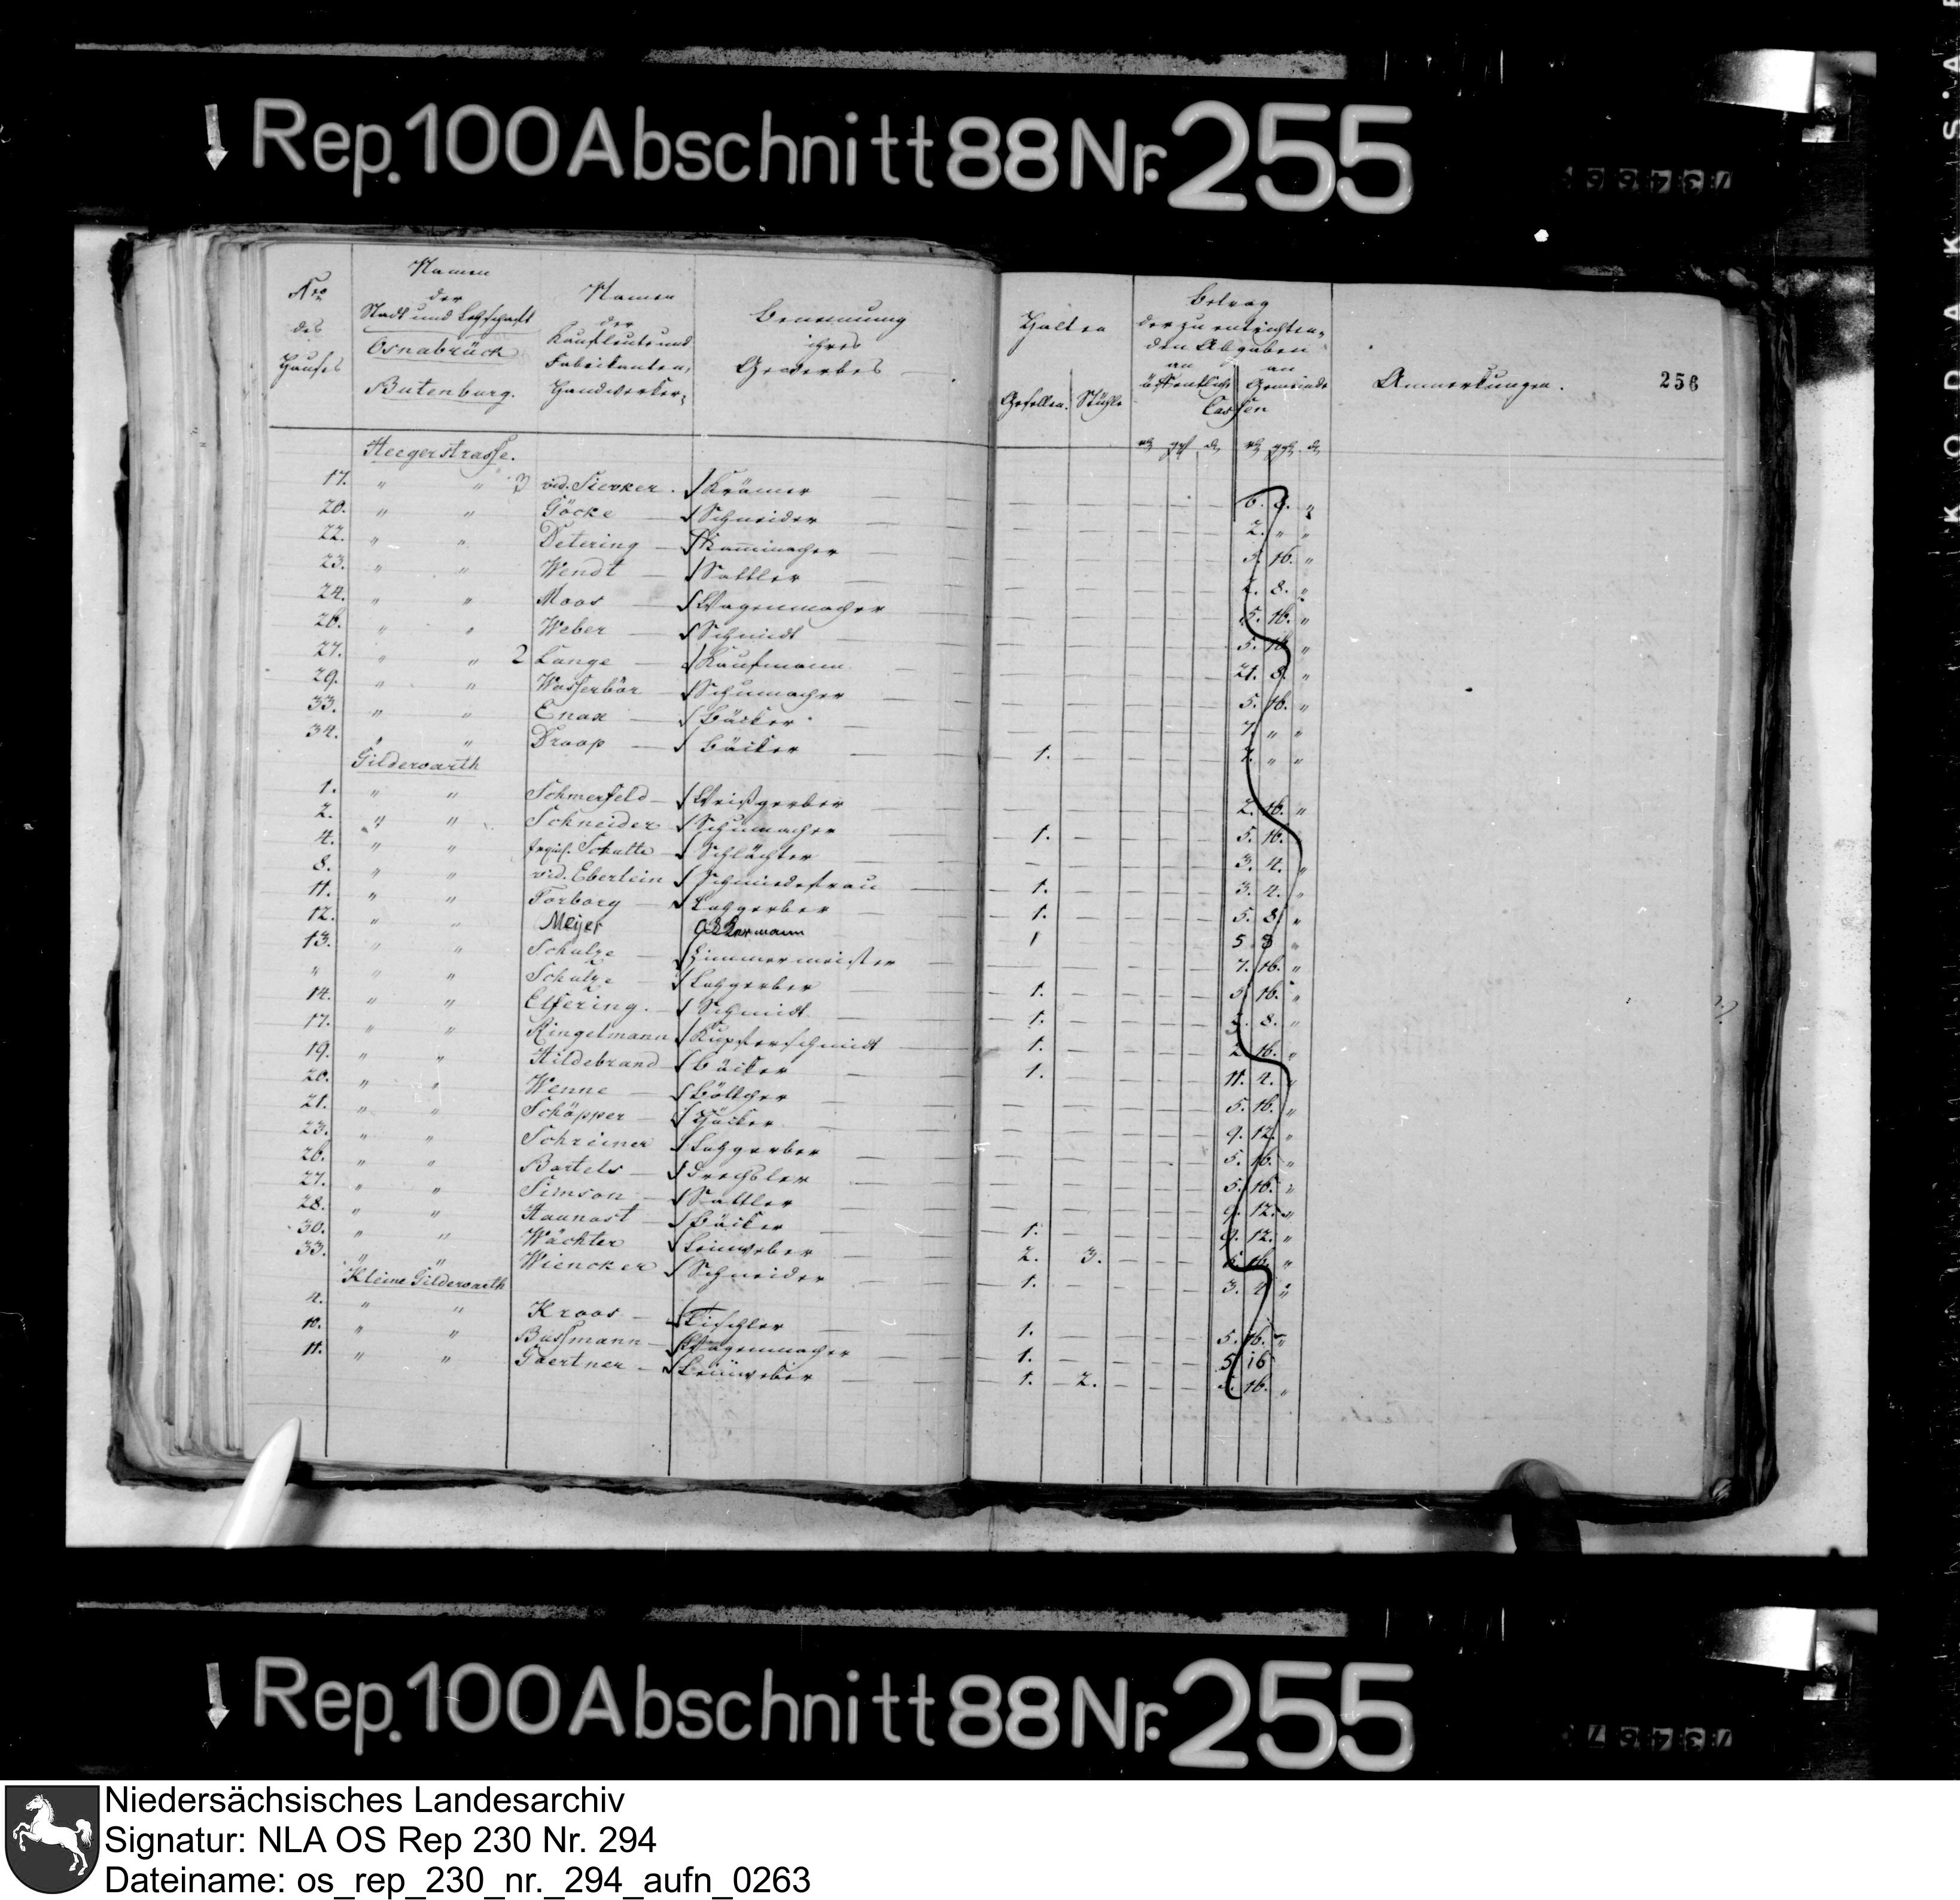 Rep. 100 Abschnitt 88 Nr. 255
Nro des Hauses
Namen der Stadt und
Osnabrück
Butenburg.
Namen der Kaufleute und Fabrikanten, Handwerker,
Benennung ihres Gewerbes
Halten
Gesellen. Stühle
Betrag der zu entrichtenden Abgaben
an öffentliche an Gemeinde
Cassen
Anmerkungen.
256
Heegerstrasse.
17. " " vid. Siewker. Krämer — — — — — 6. 8. "
20. " " Göcke Schneider — — — — — 2. " "
22. " " Detering — — — — — 5. 16. "
23. " " Wendt Sattler — — — — — 2. 8. "
24. " " Moos Wagenmacher — — — — — 5. 16. "
26. " " Weber Schmidt — — — — — 5. 16. "
27. " " 2 Lange Kaufmann — — — — — 21. 8. "
29. " " Wasserbär Schumacher — — — — — 5. 16. "
33. " " Enax Bäcker — — — — — 7. " "
34. " " Droop Bäcker 1. — — — — 7. " "
Gildewarth
1. " " Schmerfeld Weißgerber — — — — — 2. 16. "
2. " " Schneider Schumacher 1. — — — — 5. 16. "
4. " " Schulte Schlächter — — — — — 3. 4. "
8. " " vid. Eberlein Schmiedefrau 1. — — — — 3. 4. "
11. " " Torborg Lohgerber 1. — — — — 5. 8. "
12. " " Meijer Ackermann 1 — — — — 5 8 "
13. " " Schulze Zimmermeister — — — — — 7. 16. "
" " " Schulze Lohgerber 1. — — — — 5. 16. "
14. " " Elfering. Schmidt 1. — — — — 5. 8. "
17. " " Ringelmann Kupferschmidt 1. — — — — 2. 16. "
19. " " Hildebrand Bäcker 1. — — — — 11. 4. "
20. " " Wenne Böttcher — — — — — 5. 16. "
21. " " Schöpper — — — — — 9. 12. "
23. " " Schreiner Lohgerber — — — — — 5. 16. "
26. " " Bartels Drechsler — — — — — 5. 16. "
27. " " Simson Sattler — — — — — 9. 12. "
28. " " Haunast Bäcker 1. — — — — 9. 12. "
30. " " Wächter Leinweber 2. 3. — — — 16. "
33. " " Wiencker Schneider 1. — — — — 3. 4 "
Kleine Gildewarth
4. " " Kroos Tischler 1. — — — — 5. 16. "
10. " " Bussmann Wagenmacher 1. — — — — 5 16
11. " " Gaertner Leinweber 1. 2. — — — 16. "
Rep. 100 Abschnitt 88 Nr. 255
Niedersächsisches Landesarchiv
Signatur: NLA OS Rep 230 Nr. 294
Dateiname: os_rep_230_nr._294_aufn_0263